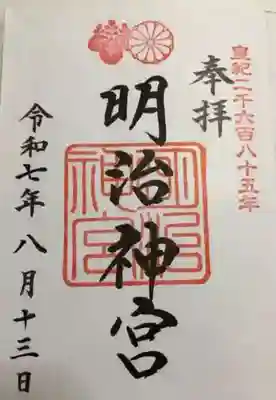 皇紀二千六百八十五年
奉拝
明治神宮
明治神宮
令和七年八月十三日